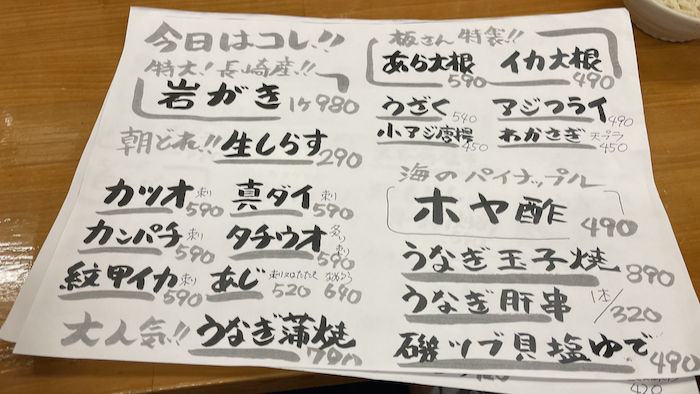 今日はコレ!!
特大!長崎産!!
岩がき 1ケ980
朝どれ!! 生しらす 290
カツオ 刺 590 真ダイ 刺 590
カンパチ 刺 590 タチウオ 刺 590
紋甲イカ 刺 590 あじ 刺 520 640
大人気!! うなぎ蒲焼
板さん特製!!
あら大根 590 イカ大根 490
うざく 540 アジフライ 490
小アジ唐揚 450 わかさぎ 天プラ 450
海のパイナップル
ホヤ酢 490
うなぎ玉子焼 890
うなぎ肝串 1本/320
磯ツブ貝塩ゆで 490